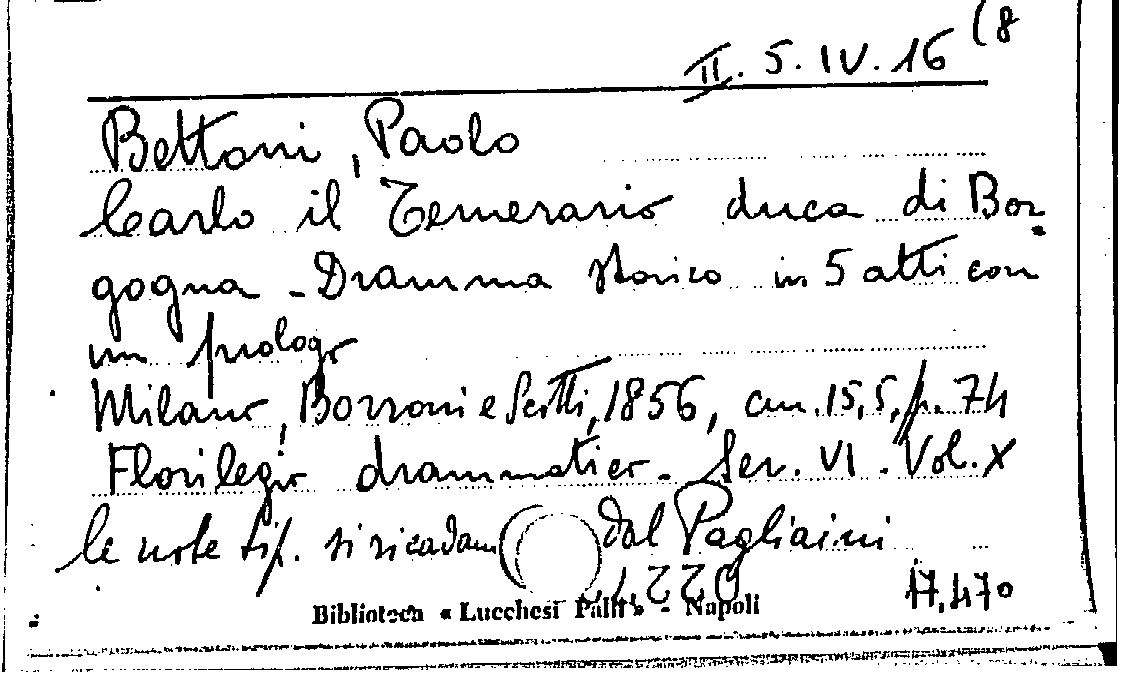 II. 5. IV. 16 (8
Bettoni, Paolo
Carlo il Temerario duca di Bor-
gogna - Dramma storico in 5 atti con
un prologo
Milano, Borroni e Scotti, 1856, cm. 15,5, p. 74
Florilegio drammatico - Ser. VI - Vol. X
le note tip. si ricavano dal Pagliaini
Biblioteca « Lucchesi Palli » - Napoli
17,470